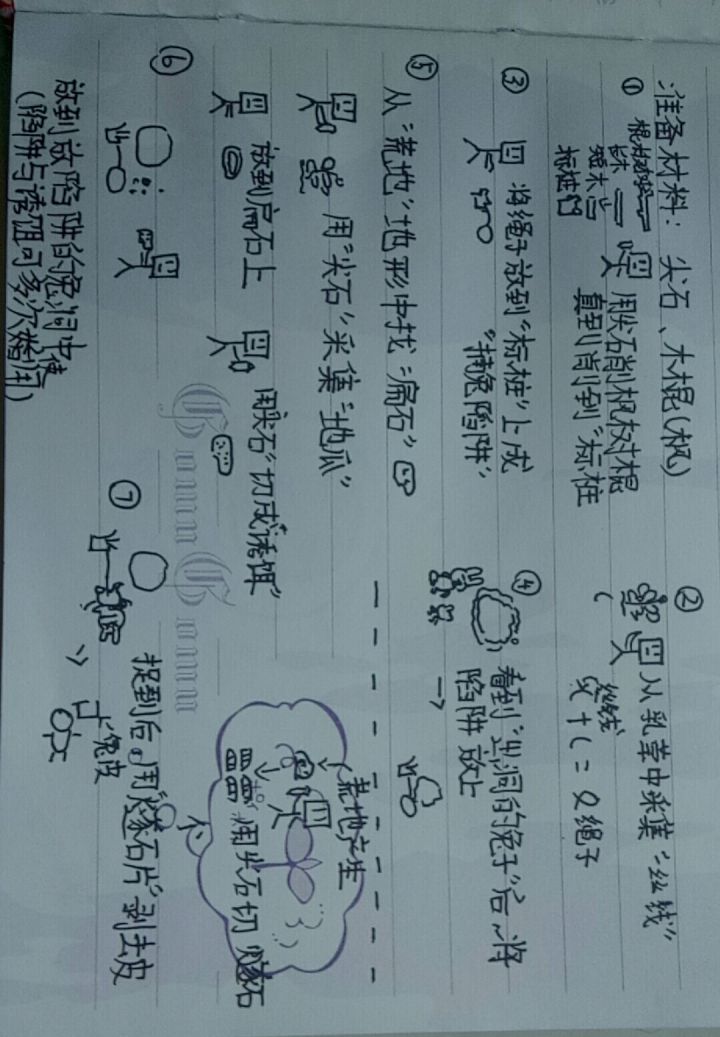 准备材料：尖石、木棍(枫)
①
长木
短木
标桩
用尖石削枫树棍
直到削到"标桩
②
从乳草中采集"丝线"
丝线
+ ( = 绳子
③
将绳子放到"标桩"上成
"捕兔陷阱"
④
看到"进洞的兔子"后,将
陷阱放上
⑤
从"荒地"地形中找"扁石"
用"尖石"采集"地瓜"
放到扁石上
用"尖石"切成"诱饵"
荒地产生
用尖石切 燧石
⑥
放到放陷阱的兔洞中使
(陷阱与诱饵可多次携用)
⑦
捉到后。用"燧石片"剥去皮
兔皮
Gomm Gomm